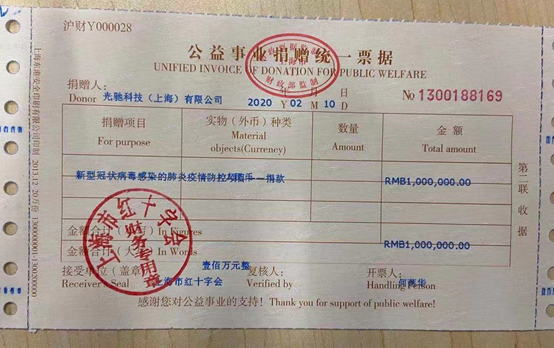 沪财Y000028
公益事业捐赠统一票据
UNIFIED INVOICE OF DONATION FOR PUBLIC WELFARE
财政部监制
捐赠人:
Donor 光驰科技（上海）有限公司
2020 年 Y 02 月 M 10 日 D
No 1300188169
捐赠项目 实物（外币）种类 数量 金额
For purpose Material objects(Currency) Amount Total amount
新型冠状病毒感染的肺炎疫情防控 捐款 RMB1,000,000.00
金额合计（小写）In Figures RMB1,000,000.00
金额合计（大写）In Words
壹佰万元整
接受单位（盖章） 复核人: 开票人:
Receiver's Seal 上海市红十字会 Verified by Handling Person
感谢您对公益事业的支持！Thank you for support of public welfare!
上海市红十字会
财务专用章
第二联 收据